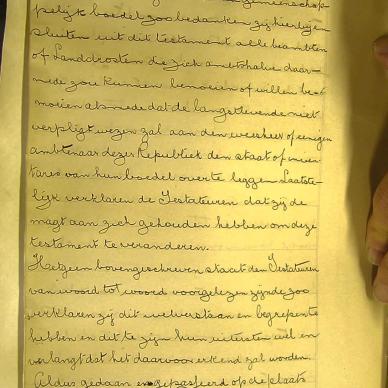 gemeenschap
pelijk boedel zoo bedanken zij hierbij en
sluiten uit dit testament alle beambten
of Landdrosten die zich ambtshalve daar
mede zou kunnen bemoeien of willen be
moeien alsmede dat de langstlevende niet
verpligt wezen zal aan den weesheer of eenigen
ambtenaar dezer Republiek den staat of inven
taris van hun boedel over te leggen Laatste
lijk verklaren de Testateuren dat zij de
magt aan zich gehouden hebben om deze
testament te veranderen.
Hetgeen bovengeschreven staat den Testateuren
van woord tot woord voorgelezen zijnde zoo
verklaren zij dit wel verstaan en begrepen te
hebben en dit te zijn hun uitersten wil en
verlangt dat het daarvoor erkend zal worden
Aldus gedaan en gepasseerd op de plaats